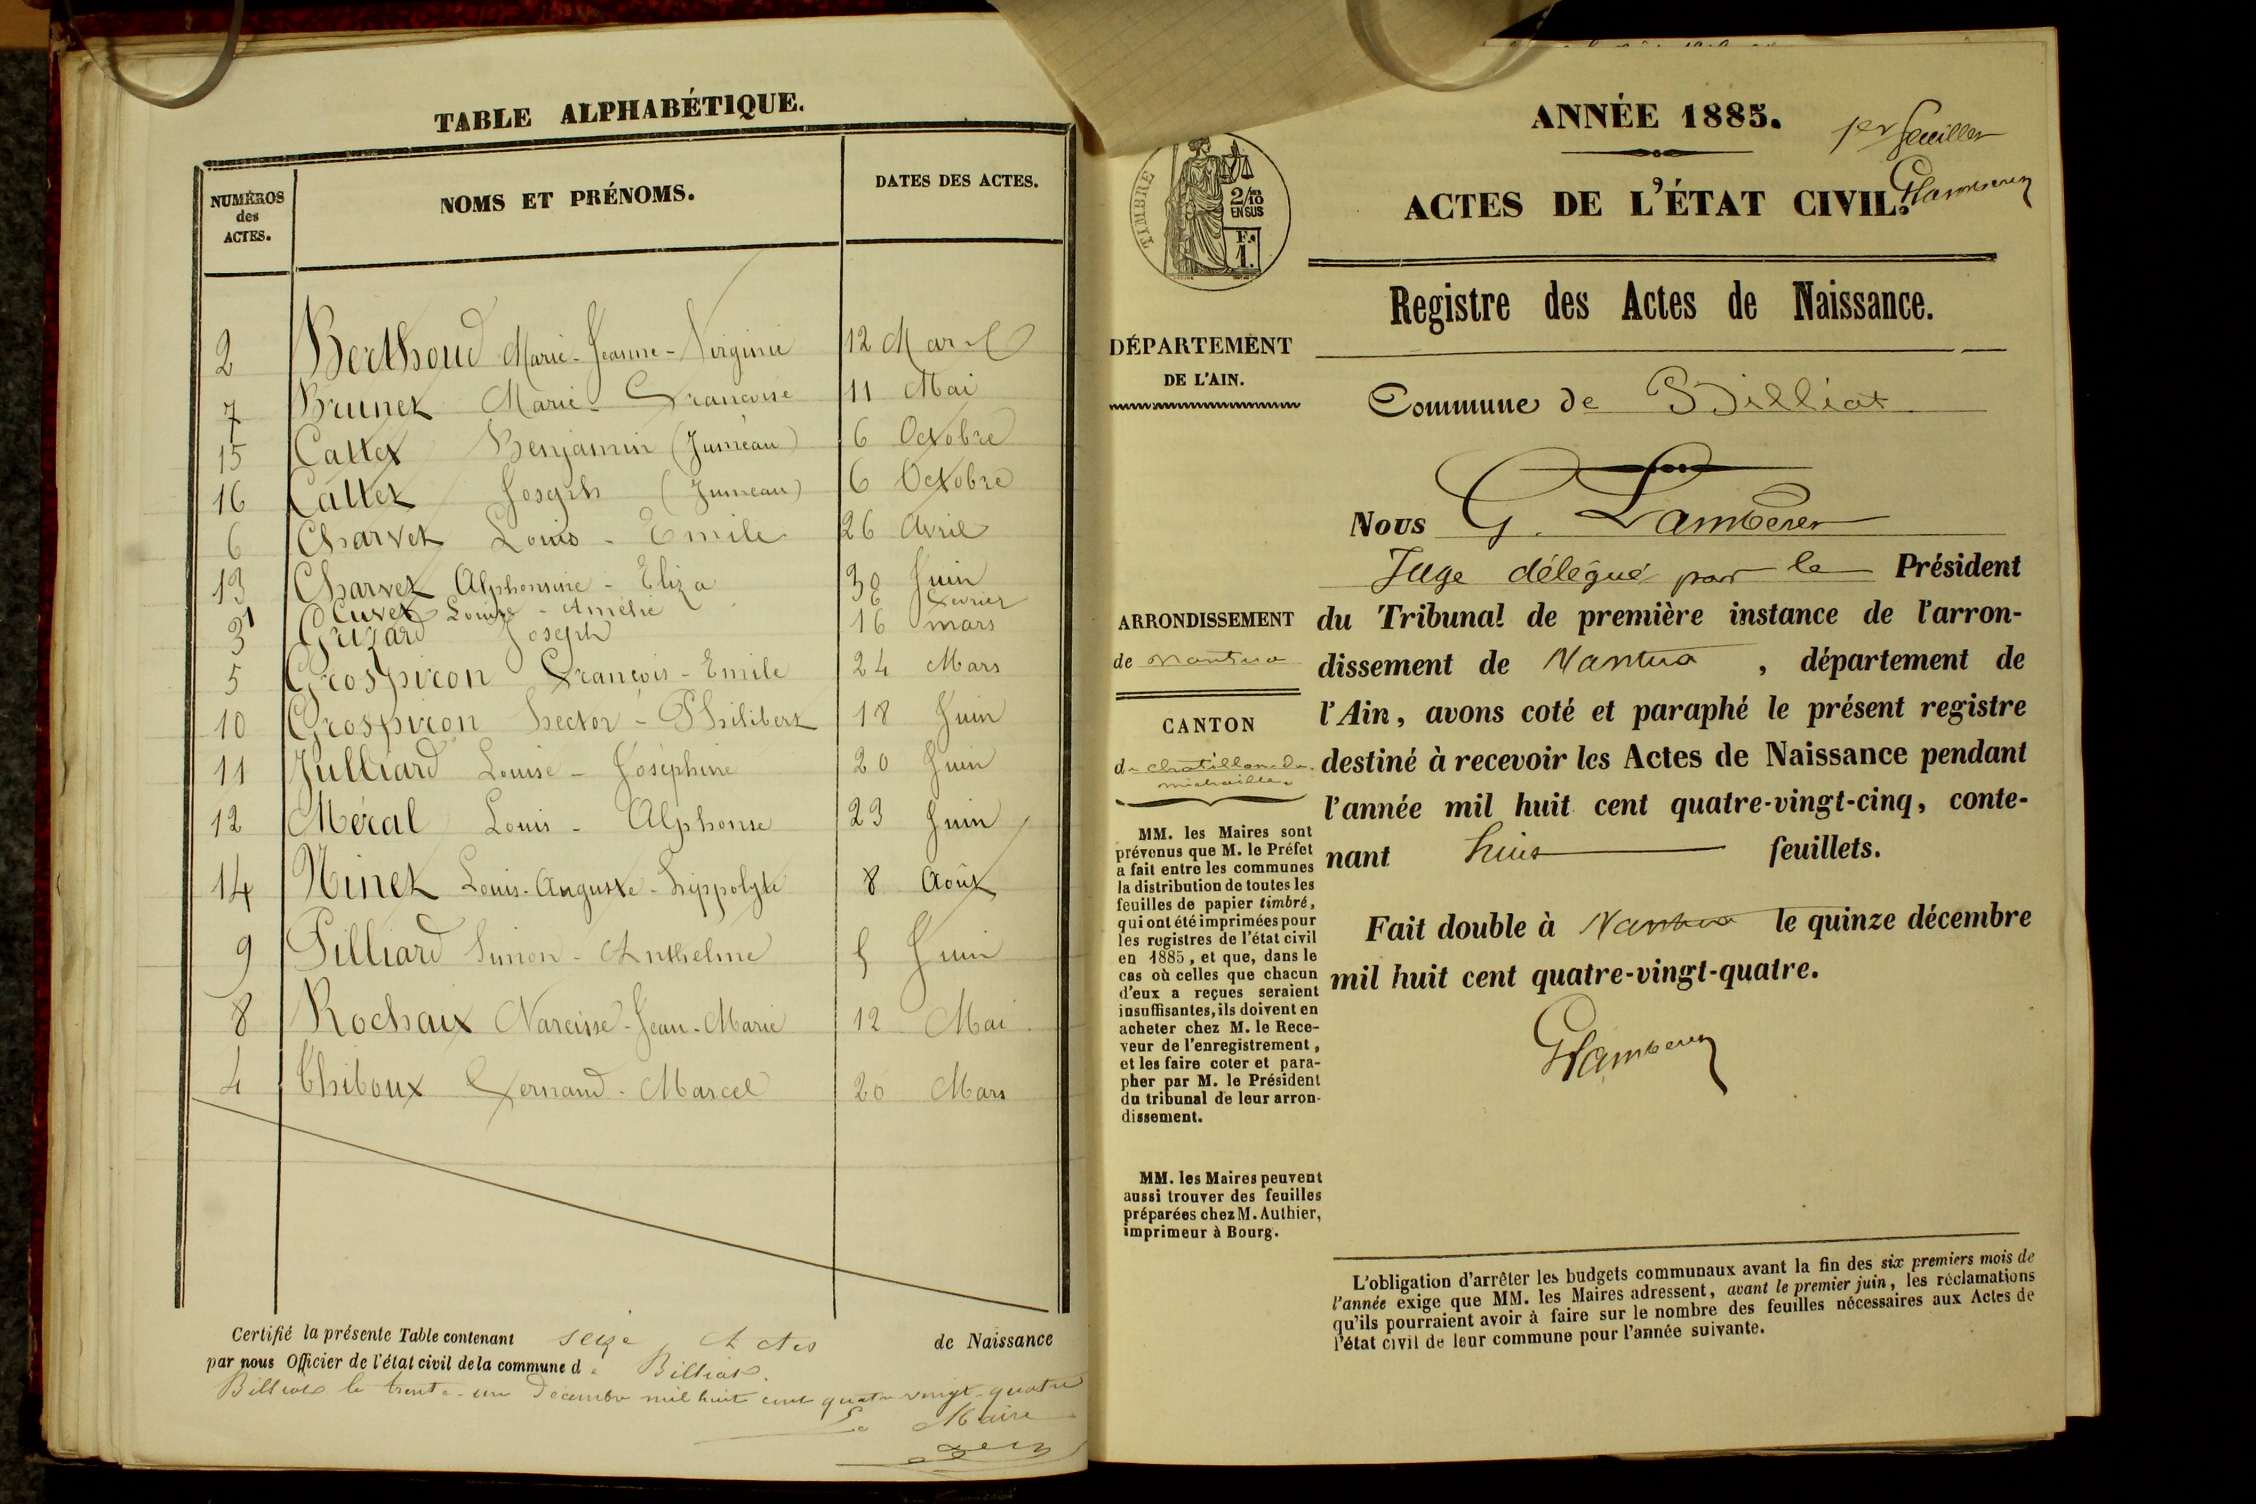 TABLE ALPHABÉTIQUE.
NUMÉROS des ACTES. NOMS ET PRÉNOMS. DATES DES ACTES.
2 Berthoud Marie-Jeanne-Virginie 12 Mars
7 Brunet Marie-Françoise 11 Mai
15 Cattet Benjamin (Jumeau) 6 Octobre
16 Cattet Joseph (Jumeau) 6 Octobre
6 Charvet Louis-Emile 26 Avril
13 Charvet Alphonsine-Eliza 30 Juin
1 Cuvet Louise-Amélie 6 Février
3 Guzard Joseph 16 mars
5 Grospiron François-Emile 24 Mars
10 Grospiron hector-Philibert 18 Juin
11 Julliard Louise-Joséphine 20 Juin
12 Méral Louis-Alphonse 23 Juin
14 Ninet Louis-Auguste-hippolyte 8 Août
9 Pilliard Simon-Anthelme 5 Juin
8 Rochaix Narcisse-Jean-Marie 12 Mai
4 Thiboux Fernand-Marcel 20 Mars
Certifié la présente Table contenant seize Actes de Naissance
par nous Officier de l'état civil de la commune de Billiat.
Billiat le trente-un Décembre mil huit cent quatre-vingt-quatre
Le Maire
ANNÉE 1885.
1er feuillet
ACTES DE L'ÉTAT CIVIL.
GLambert
TIMBRE
2/10 EN SUS
F.
1.
Registre des Actes de Naissance.
DÉPARTEMENT
DE L'AIN.
Commune de Billiat
Nous G. Lambert
Juge délégué par le Président
du Tribunal de première instance de l'arron-
dissement de Nantua, département de
l'Ain, avons coté et paraphé le présent registre
destiné à recevoir les Actes de Naissance pendant
l'année mil huit cent quatre-vingt-cinq, conte-
nant huit feuillets.
Fait double à Nantua le quinze décembre
mil huit cent quatre-vingt-quatre.
GLambert
ARRONDISSEMENT
de nantua
CANTON
de chatillon de
michaille
MM. les Maires sont
prévenus que M. le Préfet
a fait entre les communes
la distribution de toutes les
feuilles de papier timbré,
qui ont été imprimées pour
les registres de l'état civil
en 1885, et que, dans le
cas où celles que chacun
d'eux a reçues seraient
insuffisantes, ils doivent en
acheter chez M. le Rece-
veur de l'enregistrement,
et les faire coter et para-
pher par M. le Président
du tribunal de leur arron-
dissement.
MM. les Maires peuvent
aussi trouver des feuilles
préparées chez M. Authier,
imprimeur à Bourg.
L'obligation d'arrêter les budgets communaux avant la fin des six premiers mois de
l'année exige que MM. les Maires adressent, avant le premier juin, les réclamations
qu'ils pourraient avoir à faire sur le nombre des feuilles nécessaires aux Actes de
l'état civil de leur commune pour l'année suivante.